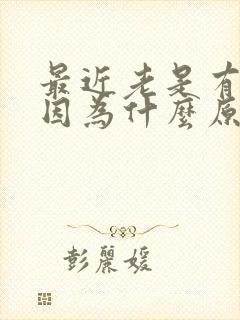 最近老是有
因為什麼原
彭麗媛